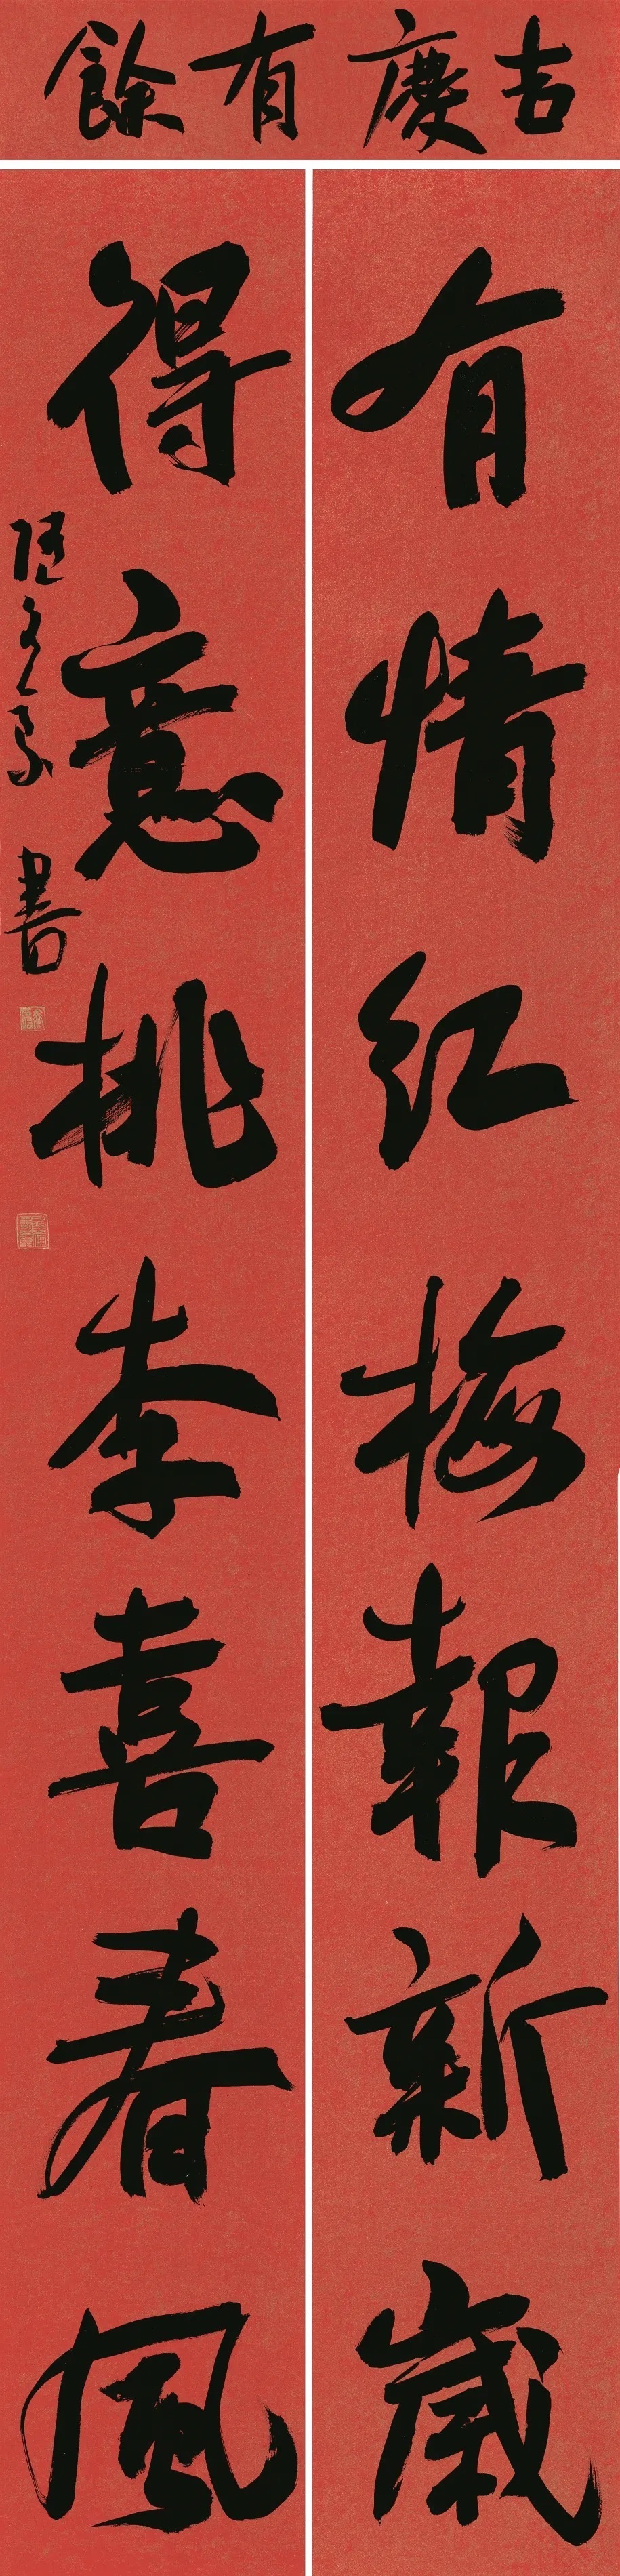 吉慶有餘
有情红梅報新歲
得意桃李喜春風
書